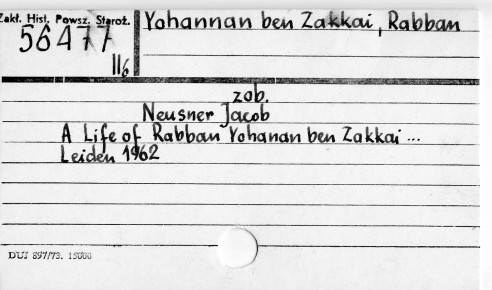 Zakł. Hist. Powsz. Staroż.
56477
II6
Yohannan ben Zakkai, Rabban
zob.
Neusner Jacob
A Life of Rabban Yohanan ben Zakkai ...
Leiden 1962
DUJ 897/73. 15000